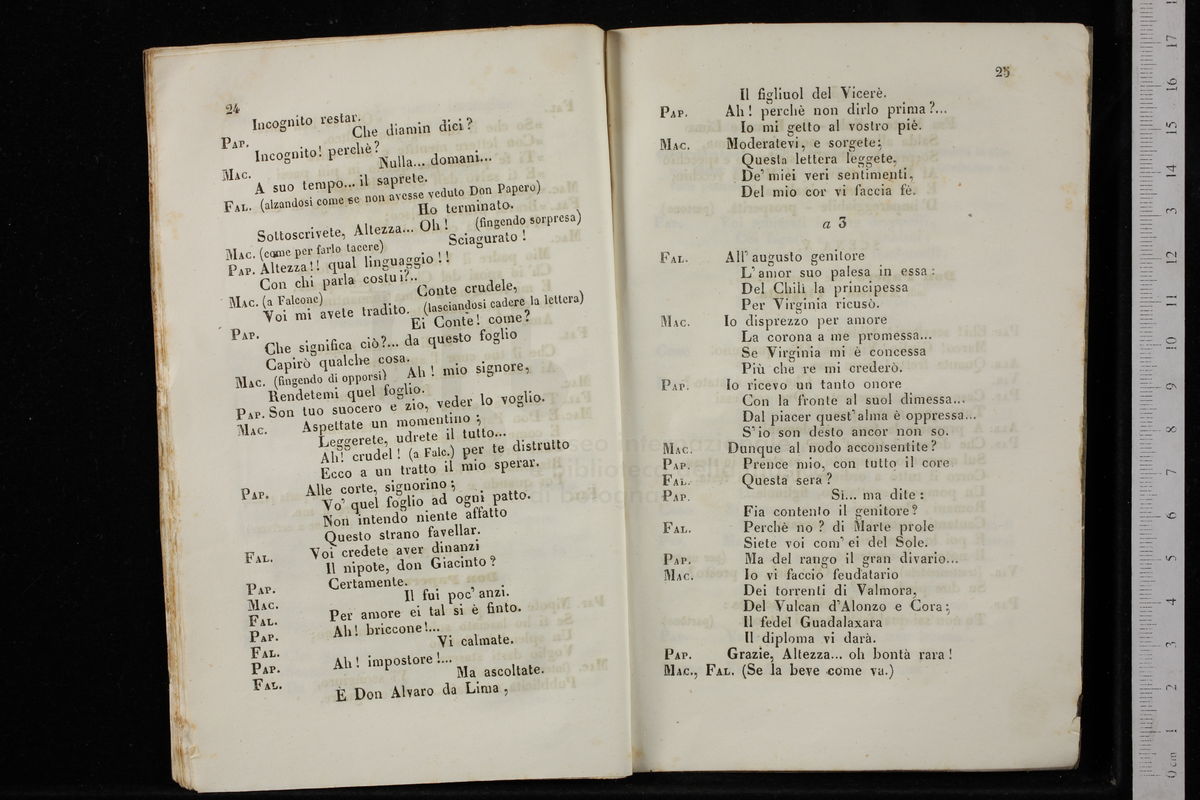 24
Incognito restar.
Che diamin dici?
PAP.
Incognito! perchè?
Nulla... domani...
MAC.
A suo tempo... il saprete.
FAL. (alzandosi come se non avesse veduto Don Papero)
Ho terminato.
Sottoscrivete, Altezza... Oh! (fingendo sorpresa)
MAC. (come per farlo tacere) Sciagurato!
PAP. Altezza!! qual linguaggio!!
Con chi parla costui?..
MAC. (a Falcone) Conte crudele,
Voi mi avete tradito. (lasciandosi cadere la lettera)
PAP. Ei Conte! come?
Che significa ciò?... da questo foglio
Capirò qualche cosa.
MAC. (fingendo di opporsi) Ah! mio signore,
Rendetemi quel foglio.
PAP. Son tuo suocero e zio, veder lo voglio.
MAC. Aspettate un momentino;
Leggerete, udrete il tutto...
Ah! crudel! (a Falc.) per te distrutto
Ecco a un tratto il mio sperar.
PAP. Alle corte, signorino;
Vo' quel foglio ad ogni patto.
Non intendo niente affatto
Questo strano favellar.
FAL. Voi credete aver dinanzi
Il nipote, don Giacinto?
PAP. Certamente.
MAC. Il fui poc' anzi.
FAL. Per amore ei tal si è finto.
PAP. Ah! briccone!...
FAL. Vi calmate.
PAP. Ah! impostore!...
FAL. Ma ascoltate.
È Don Alvaro da Lima,
25
Il figliuol del Vicerè.
PAP. Ah! perchè non dirlo prima?...
Io mi getto al vostro piè.
MAC. Moderatevi, e sorgete;
Questa lettera leggete,
De' miei veri sentimenti,
Del mio cor vi faccia fè.
a 3
FAL. All' augusto genitore
L' amor suo palesa in essa:
Del Chilì la principessa
Per Virginia ricusò.
MAC. Io disprezzo per amore
La corona a me promessa...
Se Virginia mi è concessa
Più che re mi crederò.
PAP. Io ricevo un tanto onore
Con la fronte al suol dimessa...
Dal piacer quest' alma è oppressa...
S' io son desto ancor non so.
MAC. Dunque al nodo acconsentite?
PAP. Prence mio, con tutto il core
FAL. Questa sera?
PAP. Sì... ma dite:
Fia contento il genitore?
FAL. Perchè no? di Marte prole
Siete voi com' ei del Sole.
PAP. Ma del rango il gran divario...
MAC. Io vi faccio feudatario
Dei torrenti di Valmora,
Del Vulcan d'Alonzo e Cora;
Il fedel Guadalaxara
Il diploma vi darà.
PAP. Grazie, Altezza... oh bontà rara!
MAC., FAL. (Se la beve come va.)